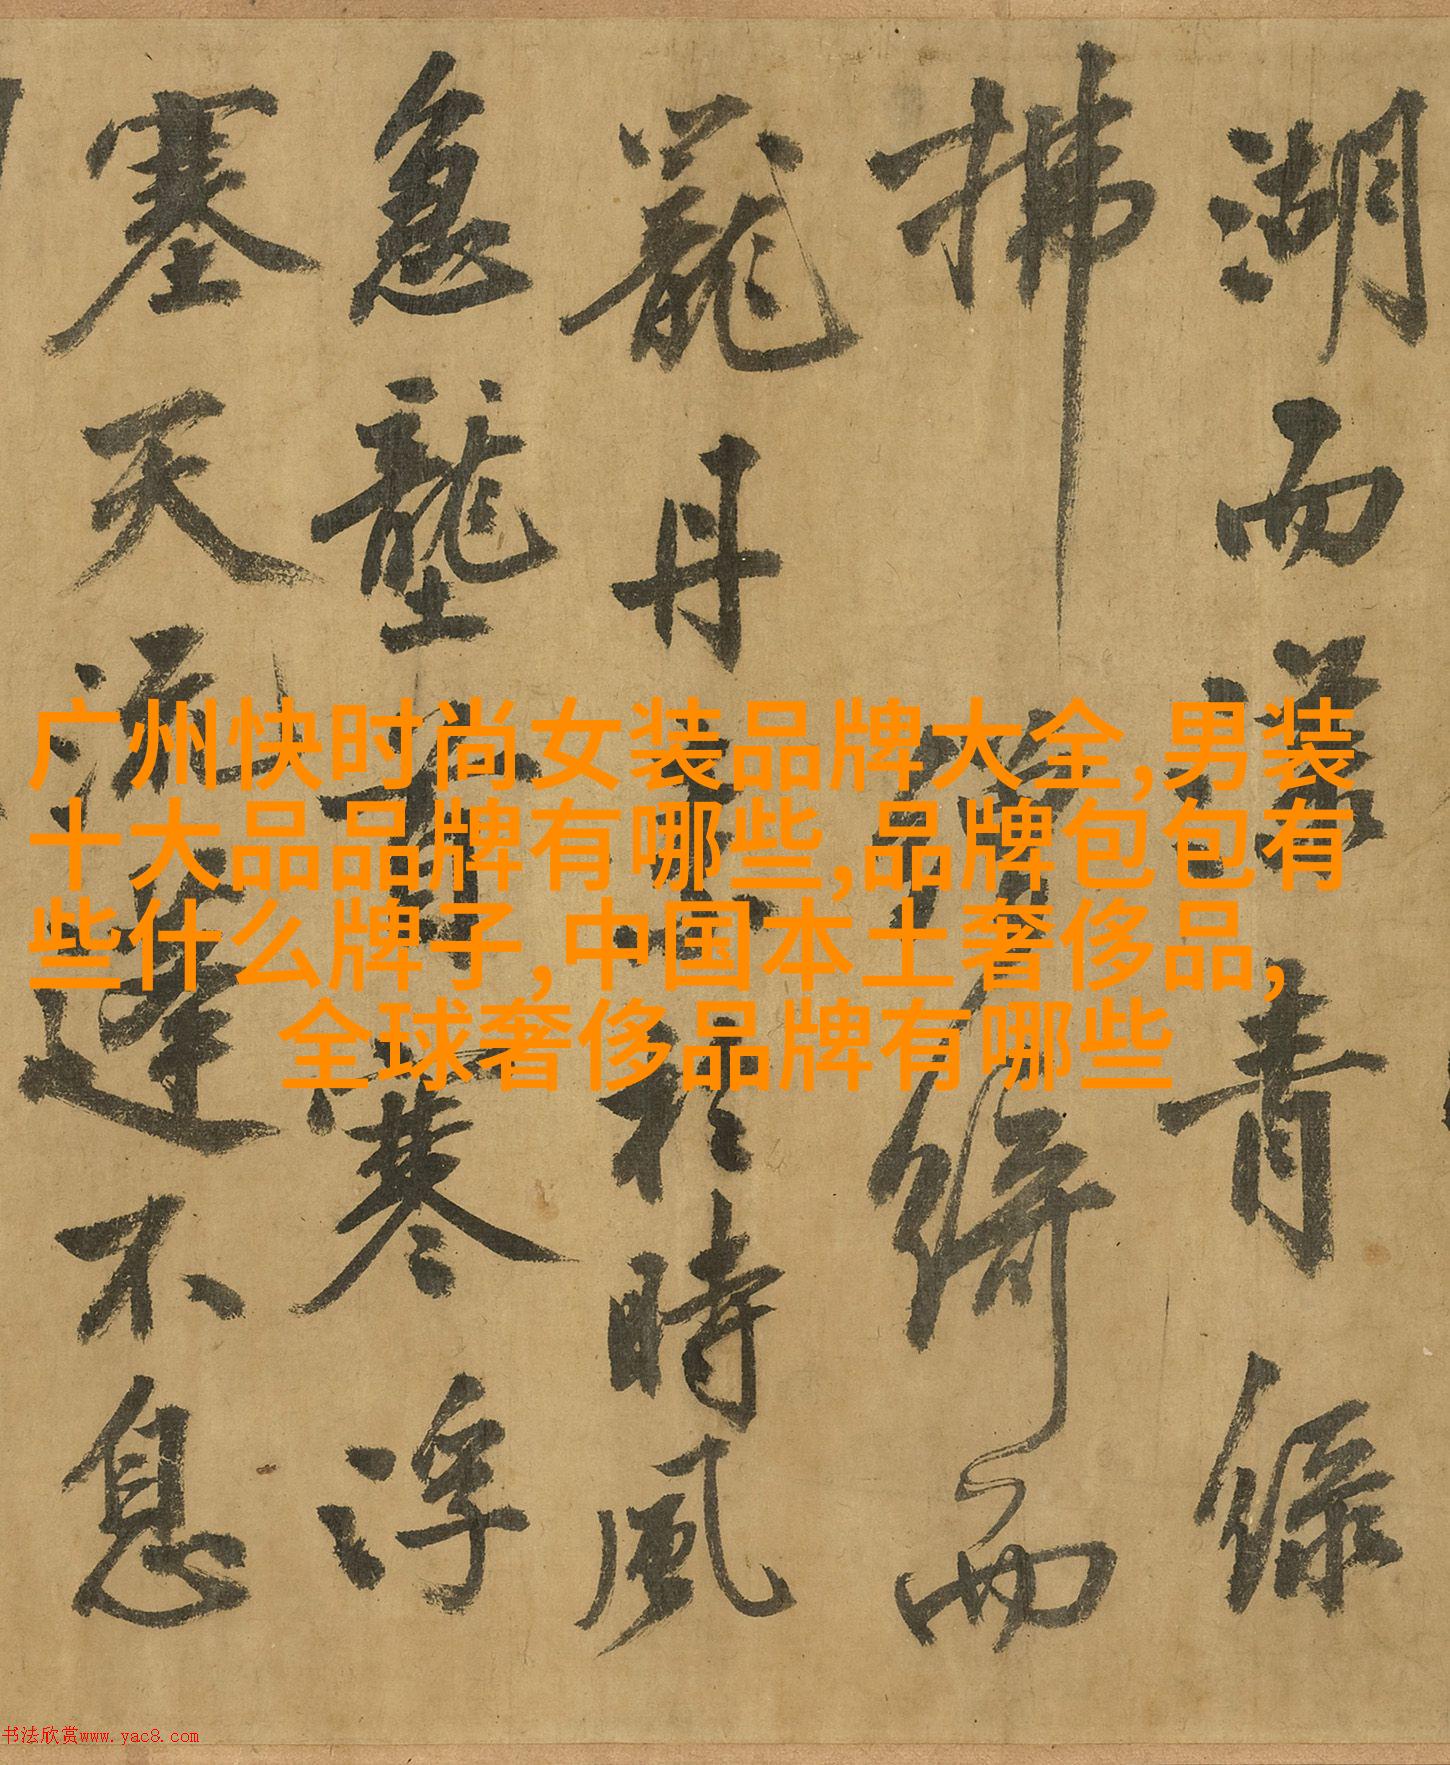 湖而漾青綠
拂綺而
丹於時風
急壟寒浮
塞天不息
广州快时尚女装品牌大全,男装
十大品品牌有哪些,品牌包包有
些什么牌子,中国本土奢侈品,
全球奢侈品牌有哪些
书法欣赏www.yac8.com